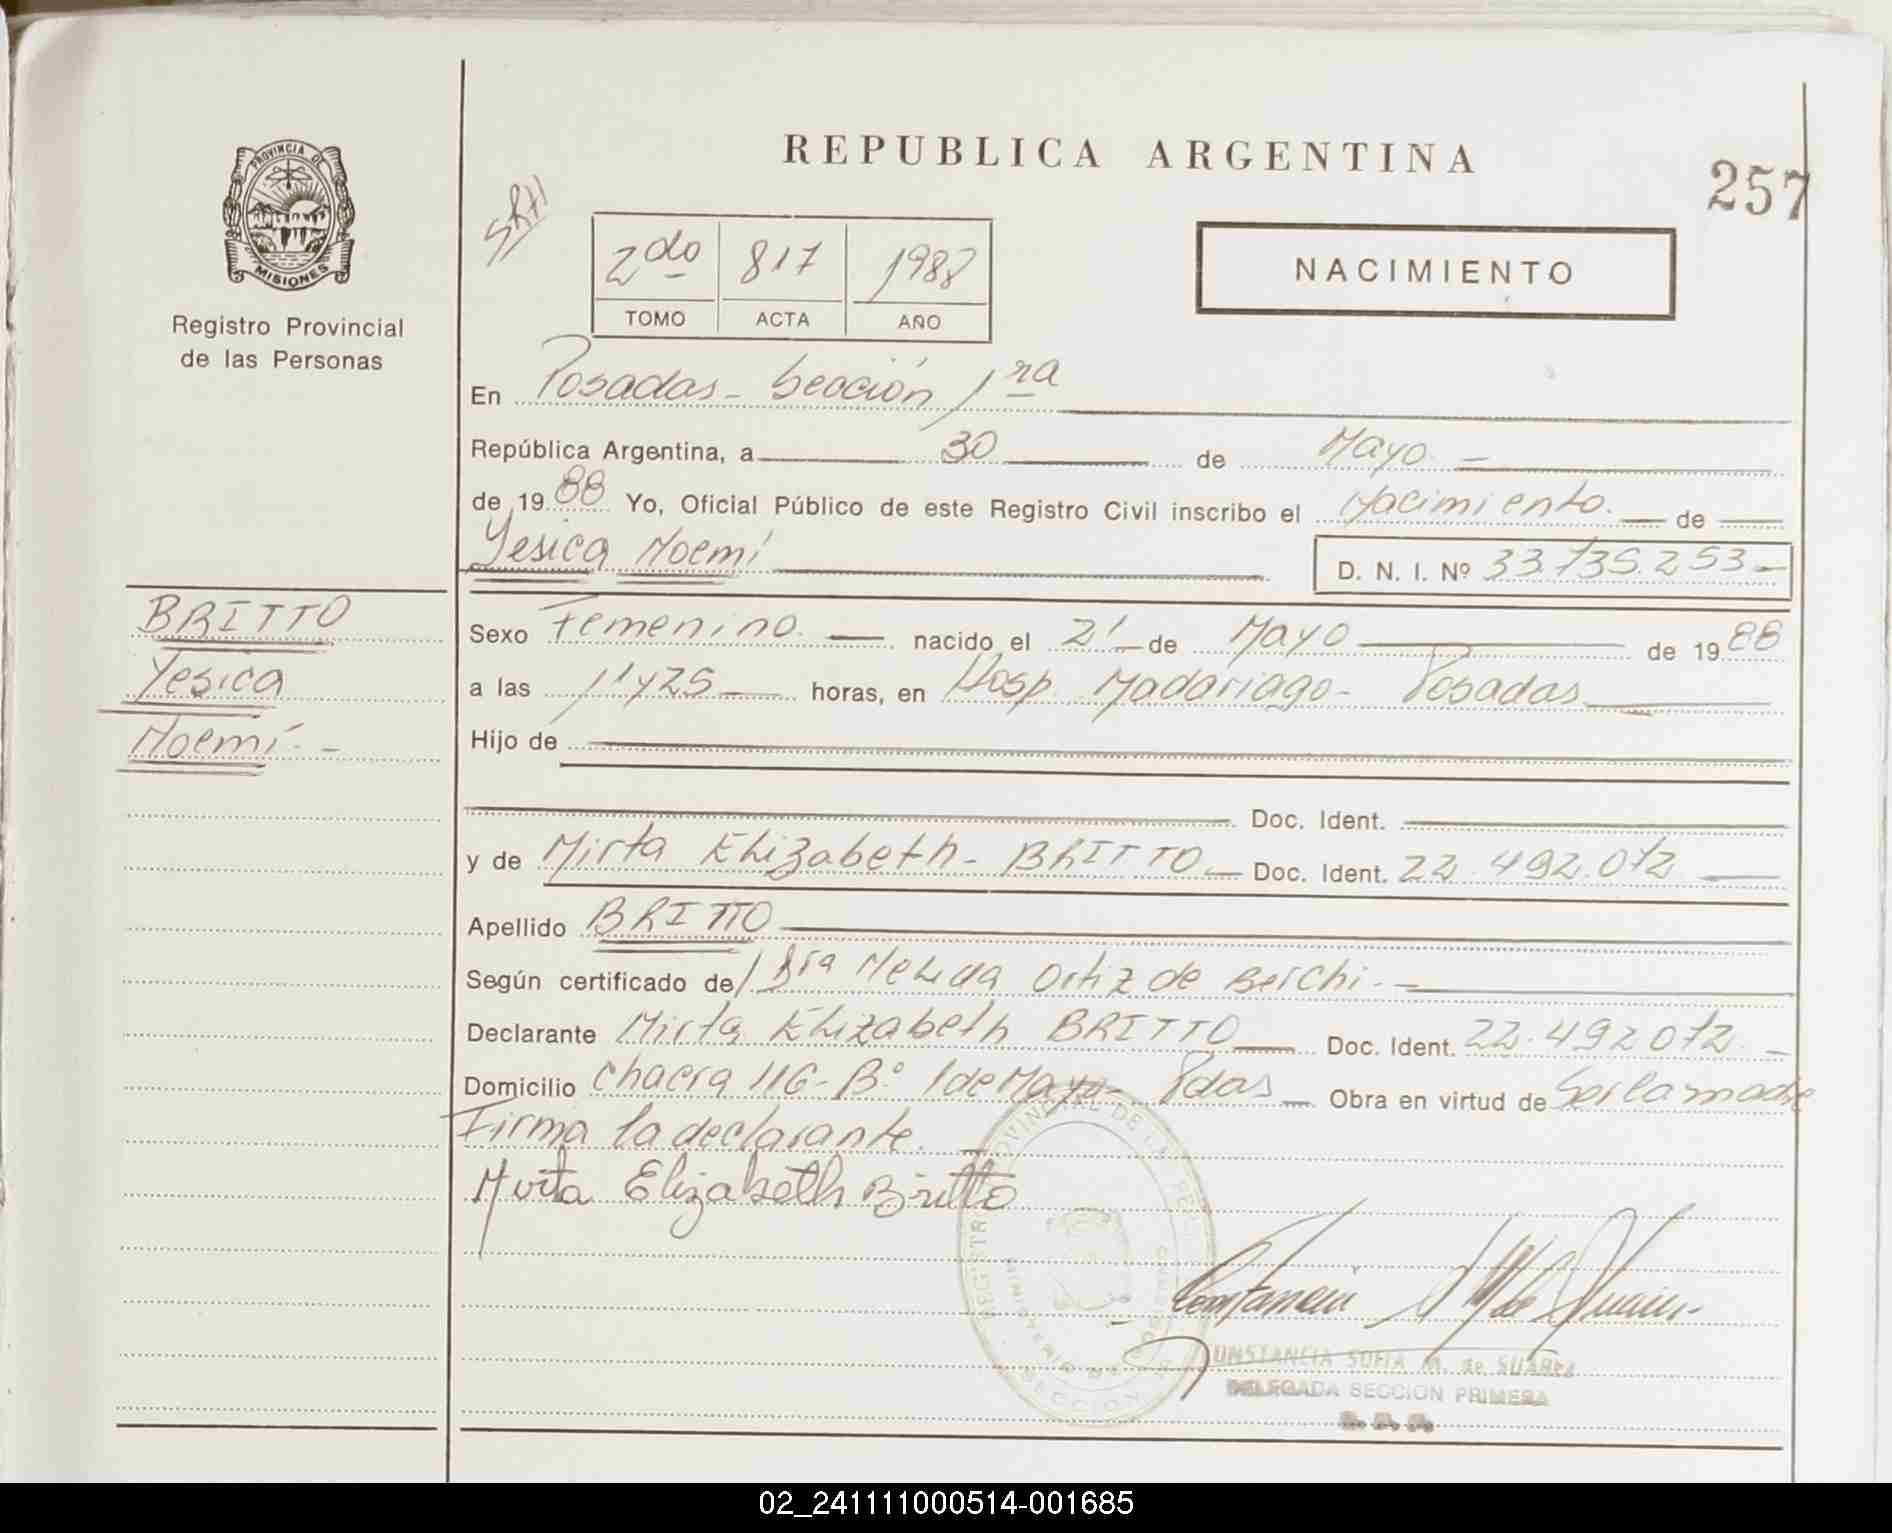 REPUBLICA ARGENTINA
257
PROVINCIA DE
MISIONES
Registro Provincial
de las Personas
SRH
2do 817 1988
TOMO ACTA AÑO
NACIMIENTO
En Posadas - Sección 1ra
República Argentina, a 30 de Mayo -
de 1988 Yo, Oficial Público de este Registro Civil inscribo el Nacimiento. de
Yesica Noemí D. N. I. Nº 33.735.253-
BRITTO
Yesica
Noemí. -
Sexo Femenino. nacido el 21 de Mayo de 1988
a las 11 y 25 horas, en Hosp. Madariaga - Posadas
Hijo de
Doc. Ident.
y de Mirta Elizabeth - BRITTO Doc. Ident. 22.492.072
Apellido BRITTO
Según certificado de Ortiz de
Declarante Mirta Elizabeth BRITTO Doc. Ident. 22.492072. -
Domicilio Chacra 116 - Bº 1 de Mayo - Pdas Obra en virtud de Ser la madre
Firma la declarante. -
Mirta Elizabeth Britto
CONSTANCIA SOFIA M. de SUAREZ
DELEGADA SECCION PRIMERA
02_241111000514-001685